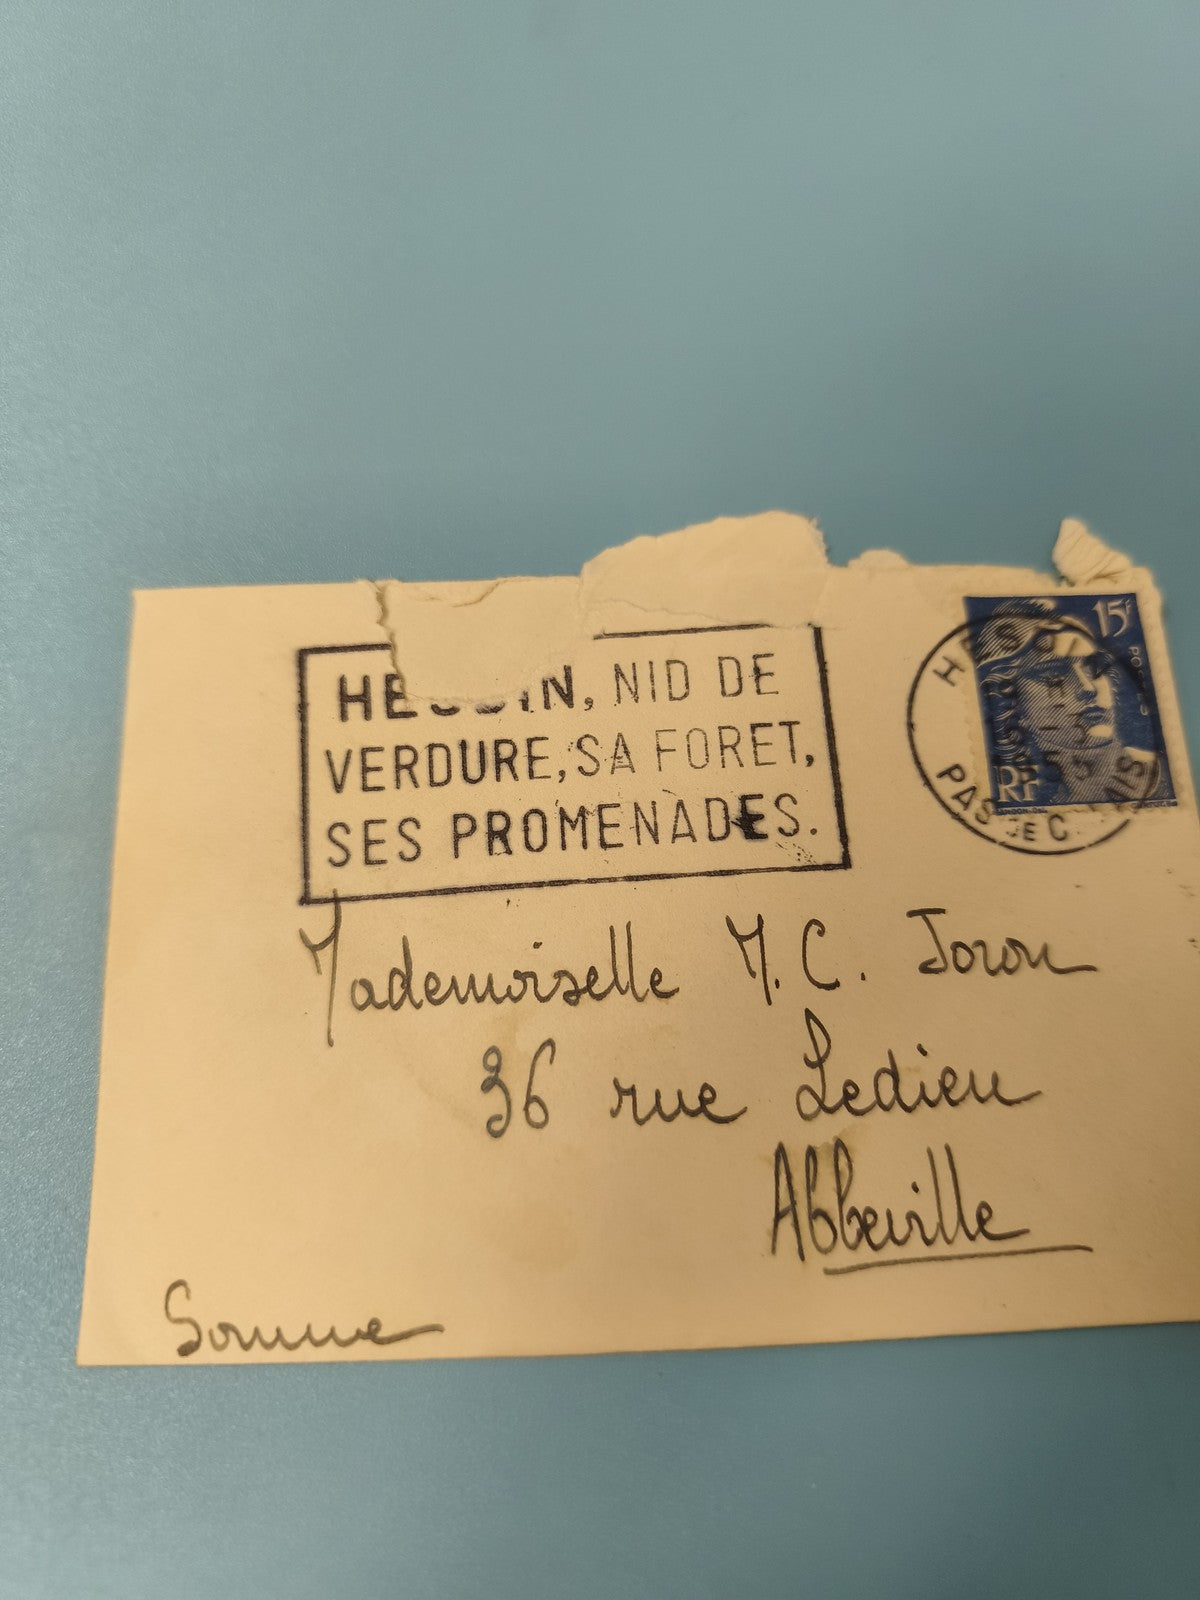 HESDIN, NID DE
VERDURE, SA FORET,
SES PROMENADES.
15f
POSTES
RF
HESDIN
PAS DE CALAIS
Mademoiselle M. C. Joron
36 rue Ledieu
Abbeville
Somme